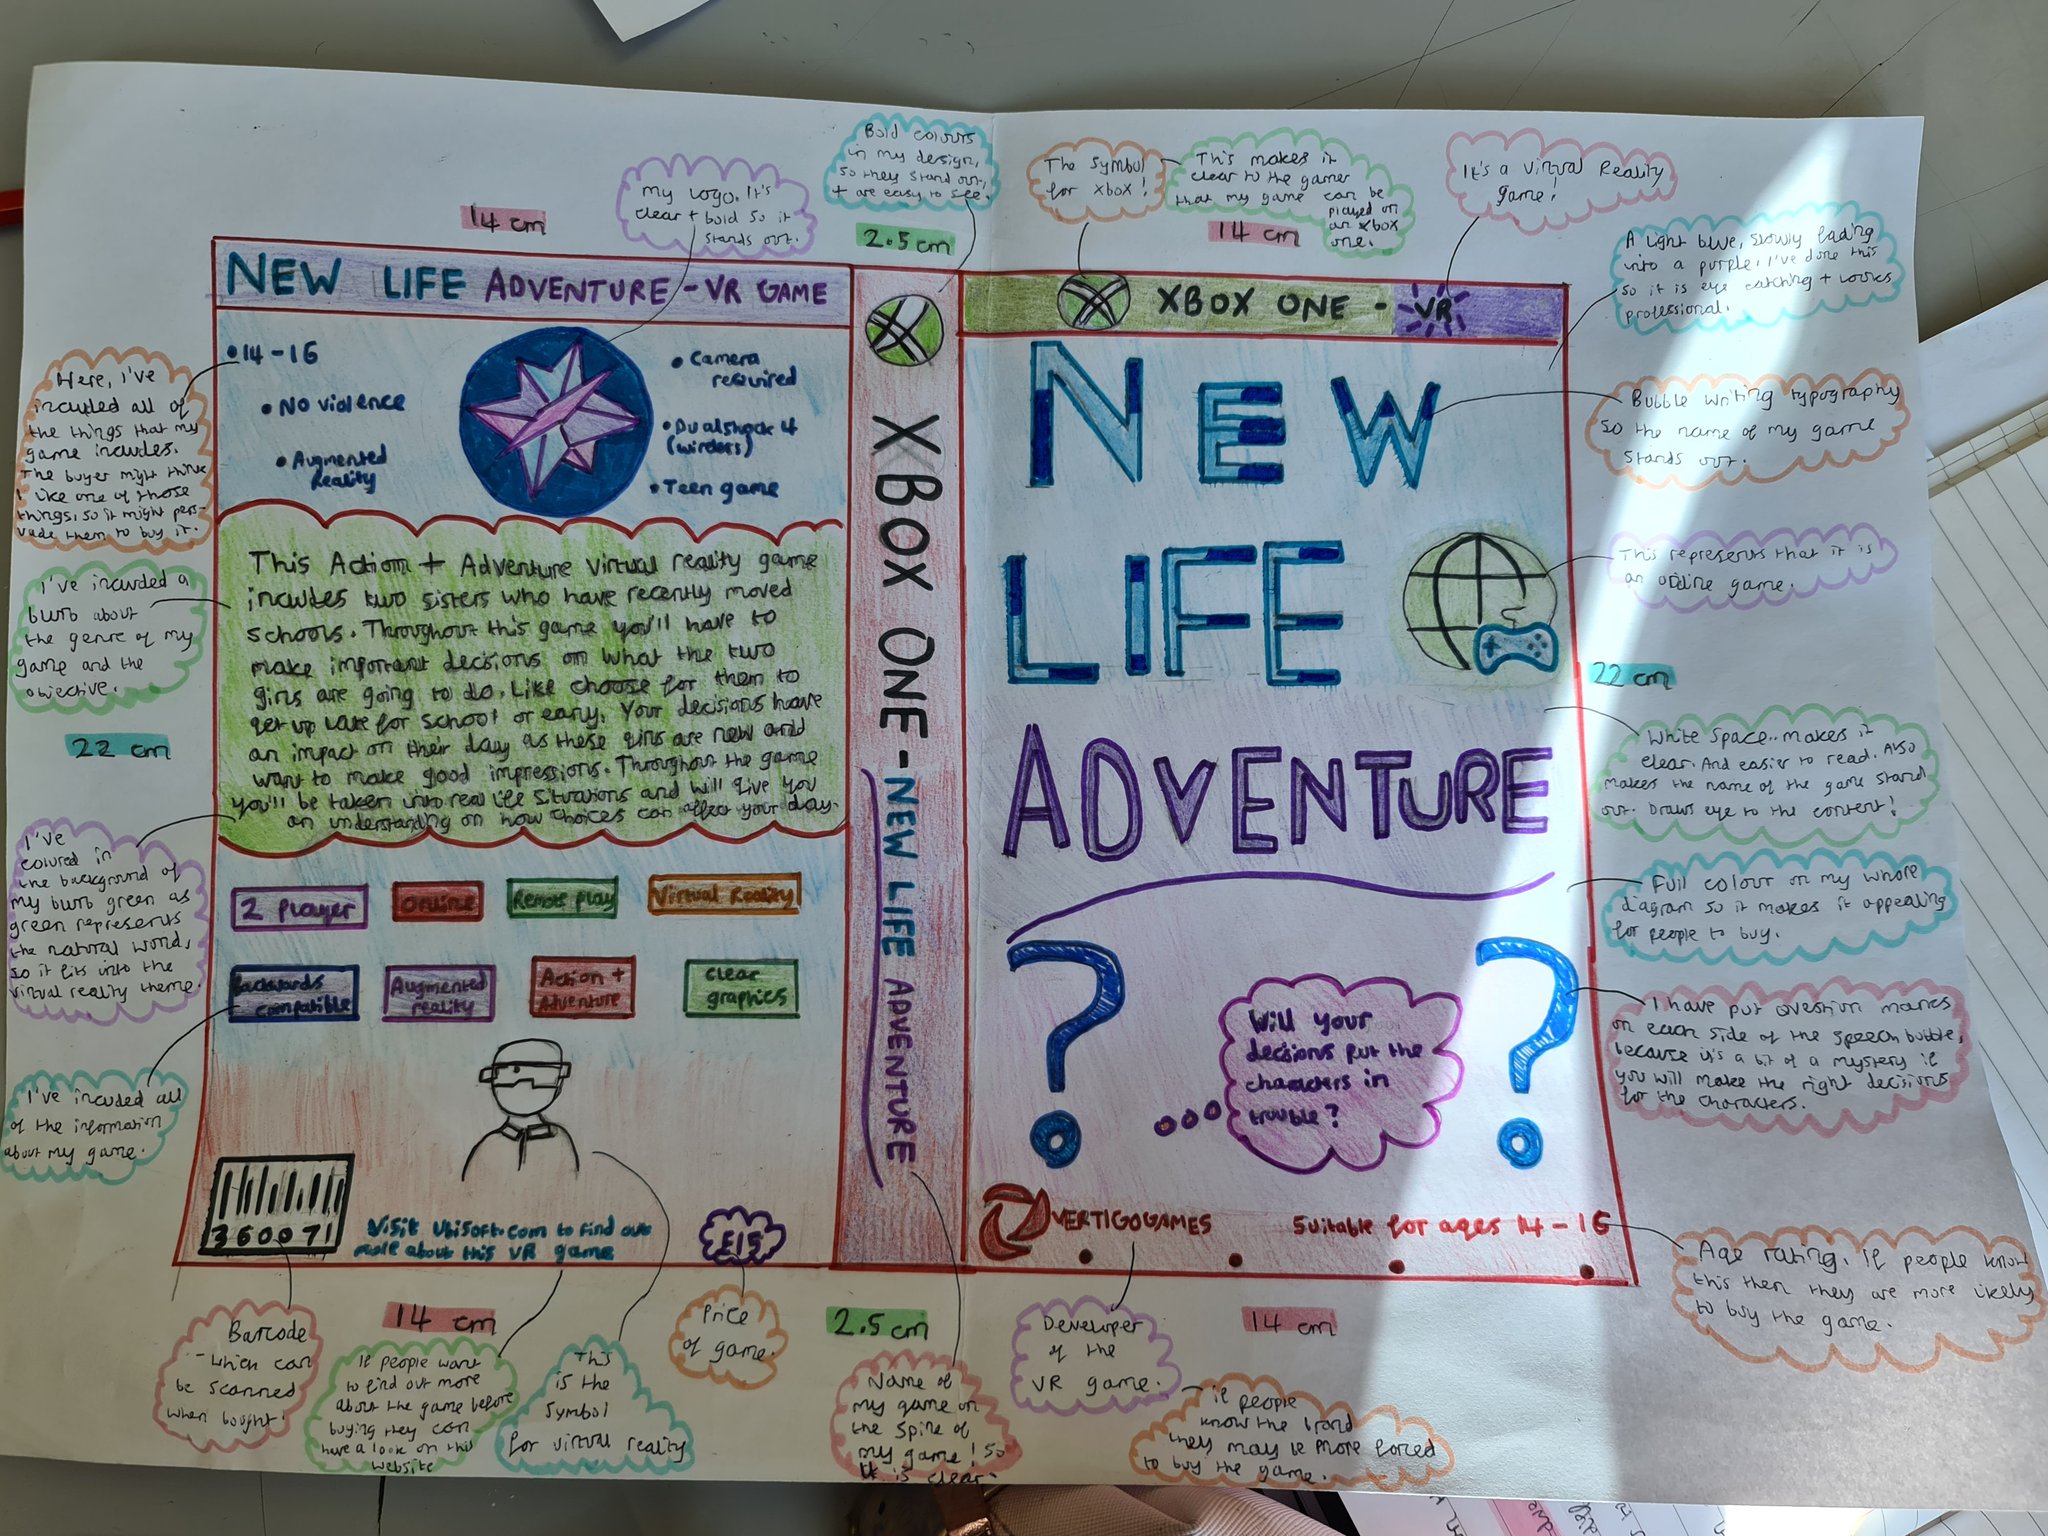 14 cm
my logo. It's
clear + bold so it
stands out.
Bold colours
in my design,
so they stand out,
+ are easy to see.
2.5 cm
The symbol
for xbox!
This makes it
clear to the gamer
that my game can be
played on
an xbox
one.
14 cm
It's a Virtual Reality
game!
A light blue, slowly fading
into a purple. I've done this
so it is eye catching + looks
professional.
NEW LIFE ADVENTURE - VR GAME
14-16
No violence
Augmented
Reality
Camera
required
Dualshock 4
Teen game
Here, I've
included all of
the things that my
game includes.
The buyer might think
I like one of those
things, so it might pers-
uade them to buy it.
I've included a
blurb about
the genre of my
game and the
objective.
22 cm
This Action + Adventure virtual reality game
includes two sisters who have recently moved
schools. Throughout this game you'll have to
make important decisions on what the two
girls are going to do. Like choose for them to
get up late for school or early. Your decisions have
an impact on their day as these girls are new and
want to make good impressions. Throughout the game
you'll be taken into real life situations and will give you
an understanding on how choices can affect your day.
I've
coloured in
the background of
my blurb green as
green represents
the natural world,
so it fits into the
virtual reality theme.
2 player
Online
Remote play
Virtual Reality
Backwards
compatible
Augmented
reality
Action +
Adventure
clear
graphics
I've included all
of the information
about my game.
360071
Visit Ubisoft.com to find out
more about this VR game
£15
XBOX ONE - NEW LIFE ADVENTURE
XBOX ONE - VR
NEW
LIFE
ADVENTURE
Will your
decisions put the
characters in
trouble?
VERTIGOGAMES
Suitable for ages 14-16
Bubble writing typography
so the name of my game
stands out.
This represents that it is
an online game.
22 cm
White space.. makes it
clear. And easier to read. Also
makes the name of the game stand
out. Draws eye to the content!
Full colour on my whole
diagram so it makes it appealing
for people to buy.
I have put question marks
on each side of the speech bubble,
because it's a bit of a mystery if
you will make the right decisions
for the characters.
Age rating. If people know
this then they are more likely
to buy the game.
Barcode
- which can
be scanned
when bought.
14 cm
If people want
to find out more
about the game before
buying they can
have a look on this
website
This
is the
symbol
for virtual reality
Price
of game.
2.5 cm
Name of
my game on
the spine of
my game! So
it is clear.
Developer
of the
VR game.
14 cm
if people
know the brand
they may be more forced
to buy the game.